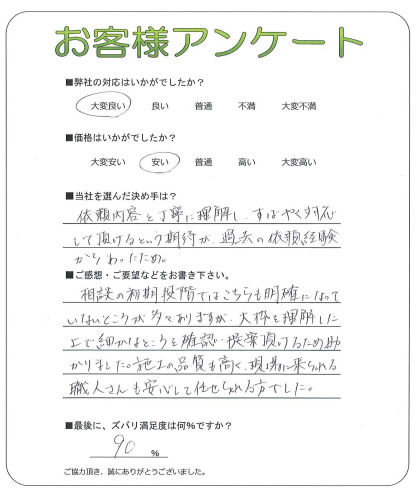 お客様アンケート
■弊社の対応はいかがでしたか？
大変良い 良い 普通 不満 大変不満
■価格はいかがでしたか？
大変安い 安い 普通 高い 大変高い
■当社を選んだ決め手は？
依頼内容を丁寧に理解し、すばやく対応
して頂けるという期待が、過去の依頼経験
からあったため。
■ご感想・ご要望などをお書き下さい。
相談の初期段階ではこちらも明確になって
いないところが多々ありますが、大枠を理解した
上で細かなところを確認・提案頂けるため助
かりました。施工の品質も高く、現場に来られる
職人さんも安心して任せられる方でした。
■最後に、ズバリ満足度は何％ですか？
90 ％
ご協力頂き、誠にありがとうございました。